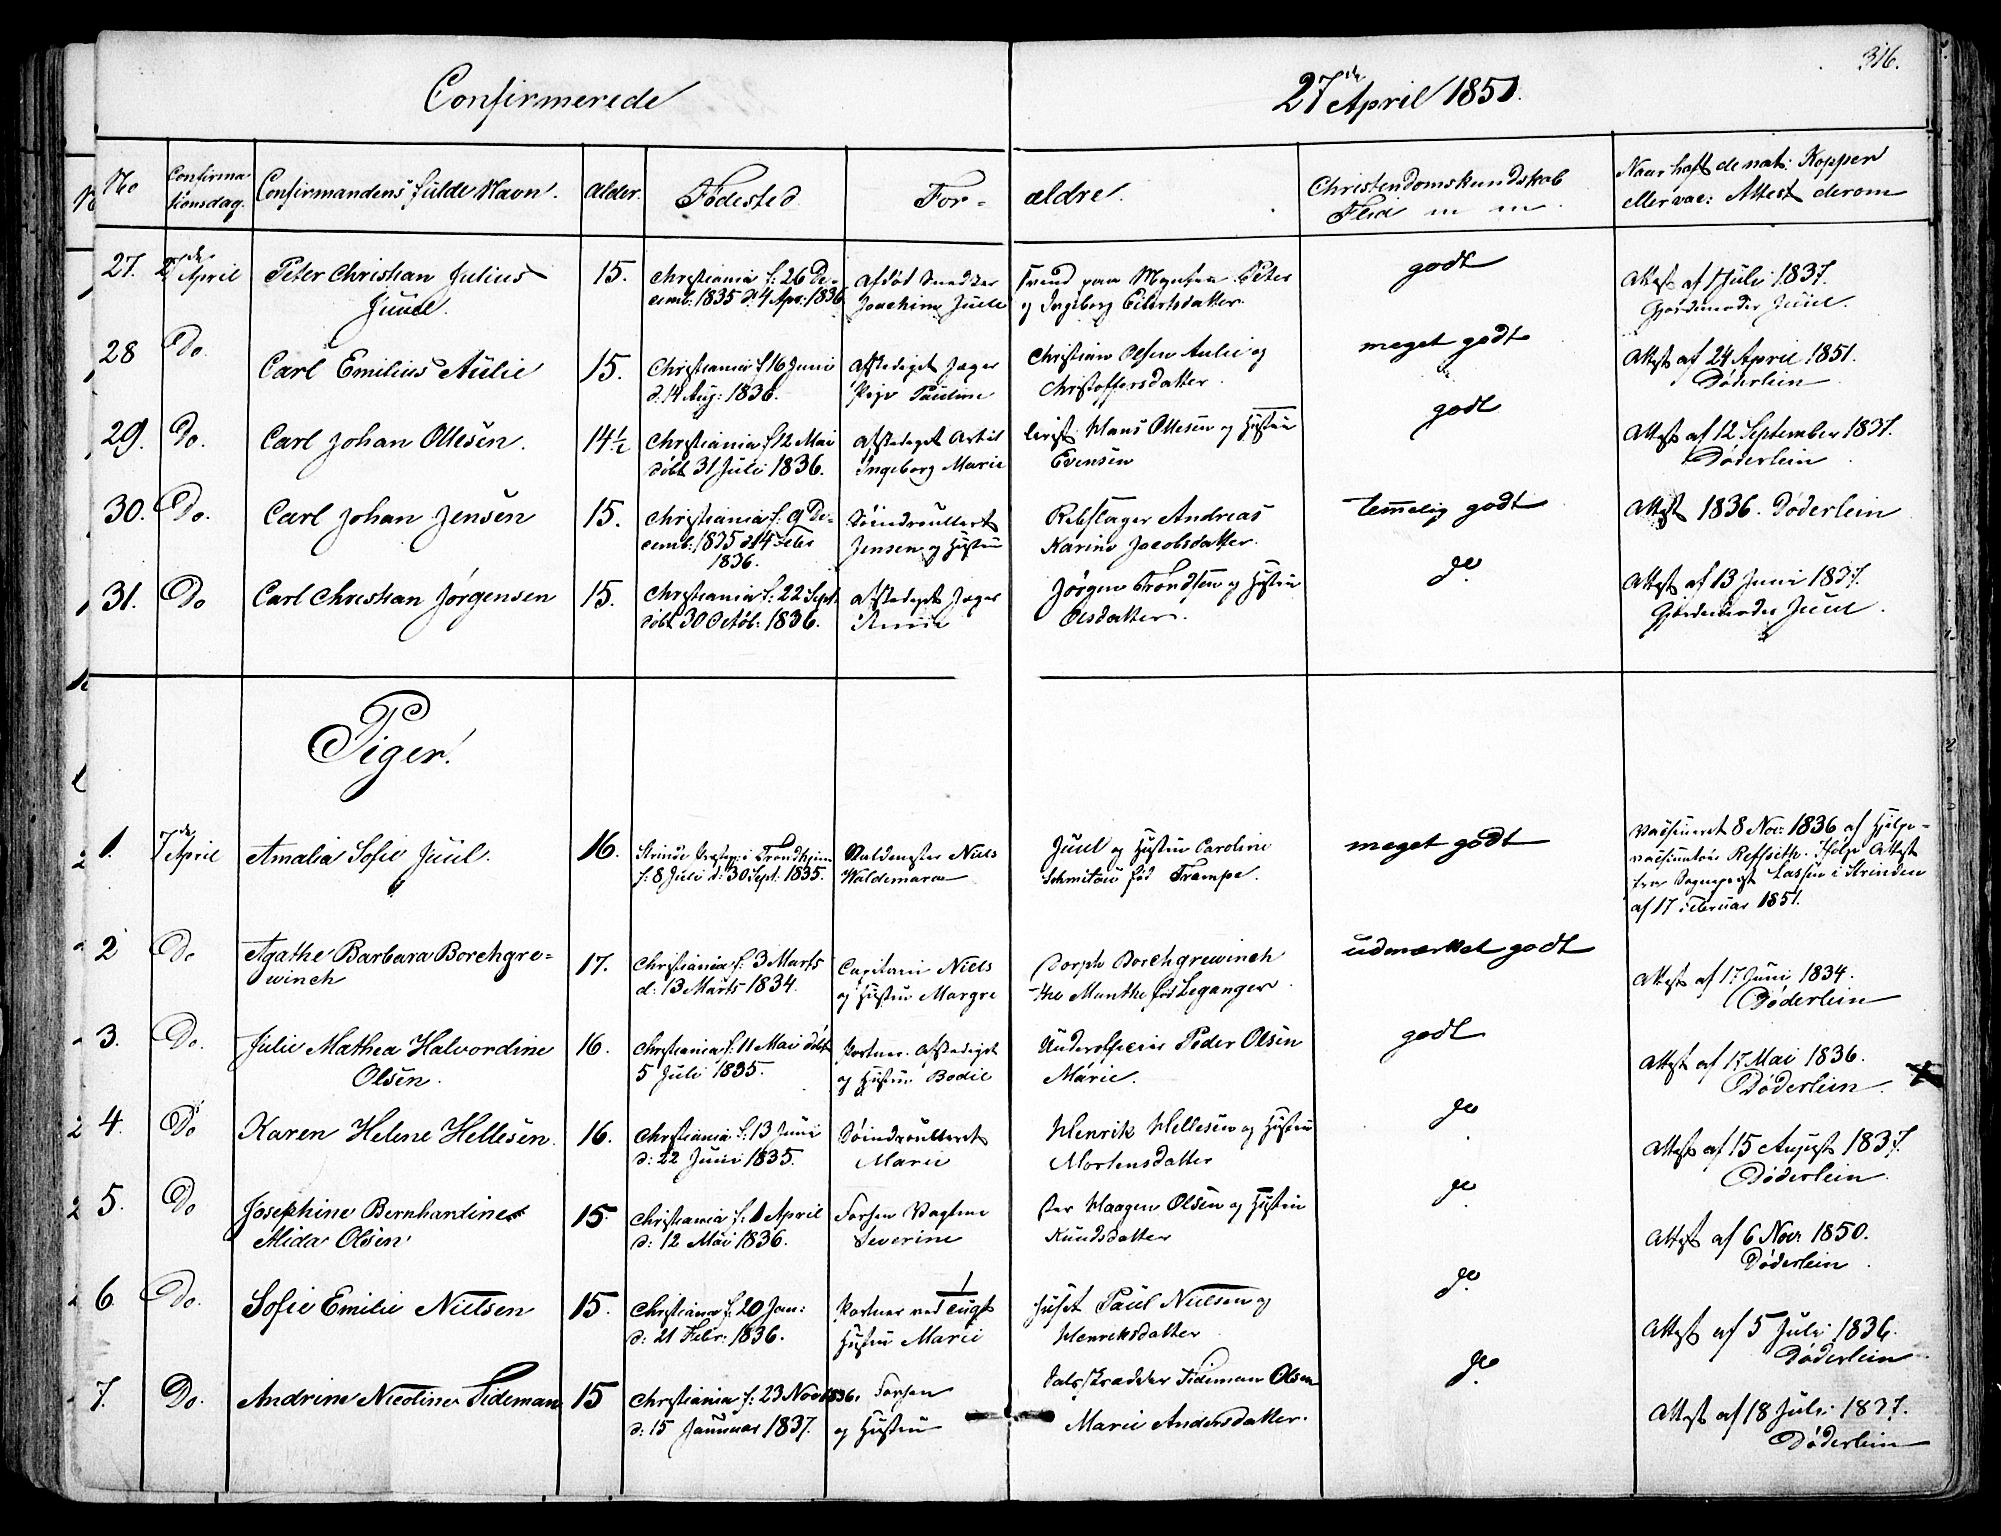 316.
Confirmerede
27de April 1851.
No
Confirma-
tionsdag.
Confirmandens fulde Navn.
Alder.
Fødested
For-
ældre.
Christendomskundskab
Flid m m
Naar haft de nat: Kopper
eller vac: Attest derom
27.
27de April
Peter Christian Julius
Juul.
15.
Christiania f: 26 De-
cemb: 1835 d: 4 Apr: 1836
Afdød Snedker
Joachim Juul
Svend paa Mynten Peter
og Ingeborg Eilertsdatter.
godt
Attest af 1 Juli 1837.
Gjordemoder Juul.
28
Do
Carl Emilius Aulie
15.
Christiania f 16 Juni
d. 14 Aug: 1836.
Afskediget Jæger
Pige Pauline
Christian Olsen Aulie og
Christoffersdatter.
meget godt
Attest af 24 April 1851.
Døderlein
29.
Do.
Carl Johan Ottesen.
14½
Christiania f 12 Mai
døbt 31 Juli 1836.
Afskediget Artil
Ingeborg Marie
lerist Hans Ottesen og Hustru
Evensen
godt
Attest af 12 September 1837.
Døderlein
30.
Do.
Carl Johan Jensen
15.
Christiania f: 9 De-
cemb: 1835 d 14 Febr
1836.
Søindroulleret
Jensen og Hustru
Rebslager Andreas
Karine Jacobsdatter.
temelig godt
Attest 1836. Døderlein
31.
Do
Carl Christian Jørgensen
15.
Christiania f: 22 Sept.
døbt 30 Octob: 1836.
Afskediget Jæger
Jørgen Trondsen og Hustru
Olsdatter.
do
Attest af 13 Juni 1837.
Gjordemoder Juul.
Piger.
1.
7de April
Amalia Sofie Juul.
16.
Strinde Præstegj: i Trondhjem
f: 8 Juli d: 30 Sept: 1835.
Waldemar
Niels
Juul og Hustru Caroline
Schmitow fød Trampe.
meget godt
Vaccineret 8 Nov: 1836 af Hjelpe-
vaccinatør
Attest
fra Sognepræst Lassen i Strinden
af 17 Februar 1851.
2
Do
Agathe Barbara Borchgre-
winck
17.
Christiania f: 3 Marts
d: 13 Marts 1834.
Capitain Niels
og Hustru Margre
Dorph Borchgrewinck
the Munthe fød Leganger.
udmærket godt
Attest af 17 Juni 1834.
Døderlein
3.
Do.
Julie Mathea Halvordine
Olsen.
16.
Christiania f: 11 Mai døbt
5 Juli 1835.
Portner. Afskediget
og Hustru Bodil
Underofficeer Peder Olsen
Marie.
godt
Attest af 17 Mai 1836.
Døderlein.
4.
Do
Karen Helene Hellesen.
16.
Christiania f: 13 Juni
d: 22 Juni 1835.
Søindroulleret
Marie
Henrik Hellesen og Hustru
Mortensdatter
do
Attest af 15 August 1837.
Døderlein.
5.
Do
Josephine Bernhardine
Alida Olsen
15.
Christiania f: 1 April
d: 12 Mai 1836.
Forhen Vagtme
Severine
ster Haagen Olsen og Hustru
Knudsdatter
do
Attest af 6 Nov 1850.
Døderlein
6.
Do.
Sofie Emilie Nielsen
15.
Christiania f: 20 Jan:
d: 21 Febr: 1836.
Portner ved Tugt
Hustru Marie
huset Paul Nielsen og
Henriksdatter
do
Attest af 5 Juli 1836.
Døderlein
7.
Do.
Andrine Nicoline Tideman
15
Christiania f: 23 Nov 1836.
d: 15 Januar 1837.
Forhen
og Hustru
Tideman Olsen
Marie Andersdatter.
do
Attest af 18 Juli 1837.
Døderlein